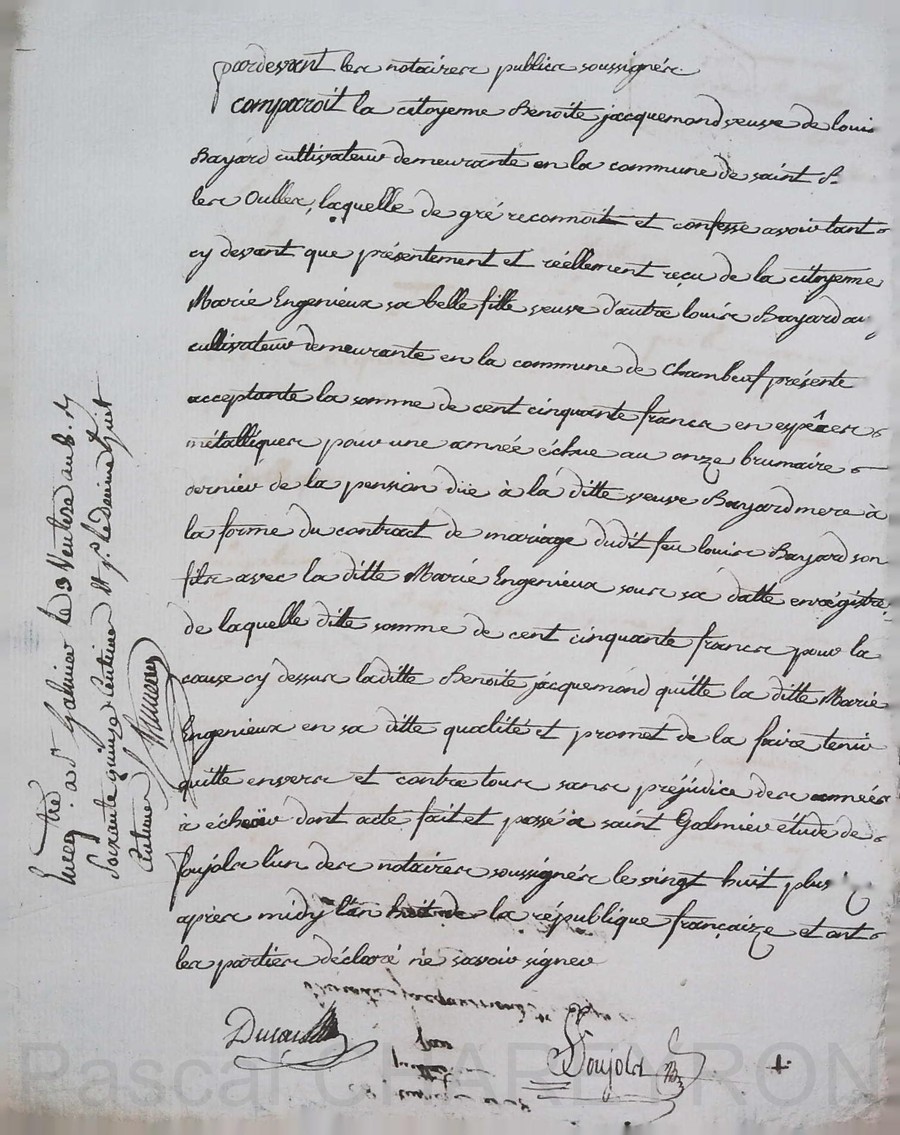 pardevant les notaires publics soussignés
comparoit la citoyenne Benoite jacquemond veuve de louis
Bayard cultivateur demeurante en la commune de saint B.
les Oulles, laquelle de gré reconnoit et confesse avoir tant
cy devant que présentement et réellement reçu de la citoyenne
Marie Engenieux sa belle fille veuve d'autre louis Bayard
cultivateur demeurante en la commune de Chambeuf présente
acceptante la somme de cent cinquante francs en espêces
métalliques pour une année échue au onze brumaire
dernier de la pension düe à la ditte veuve Bayard mere à
la forme du contract de mariage dudit feu louis Bayard son
fils avec la ditte Marie Engenieux sous sa datte enregistré
de laquelle ditte somme de cent cinquante francs pour la
cause cy dessus laditte Benoite jacquemond quitte la ditte Marie
Engenieux en sa ditte qualité et promet de la faire tenir
quitte envers et contre tous sans préjudice des années
à échoir dont acte fait et passé à saint Galmier étude de
Soujols l'un des notaires soussignés le vingt huit pluv
après midy l'an huit de la république françaize et ont
les parties déclaré ne savoir signer
Soujols
Enreg.tré à St Galmier le 3 Ventose an 8. R
Soixante quinze Centimes et pr. le decime huit
Centimes
Pascal CHAREYRON